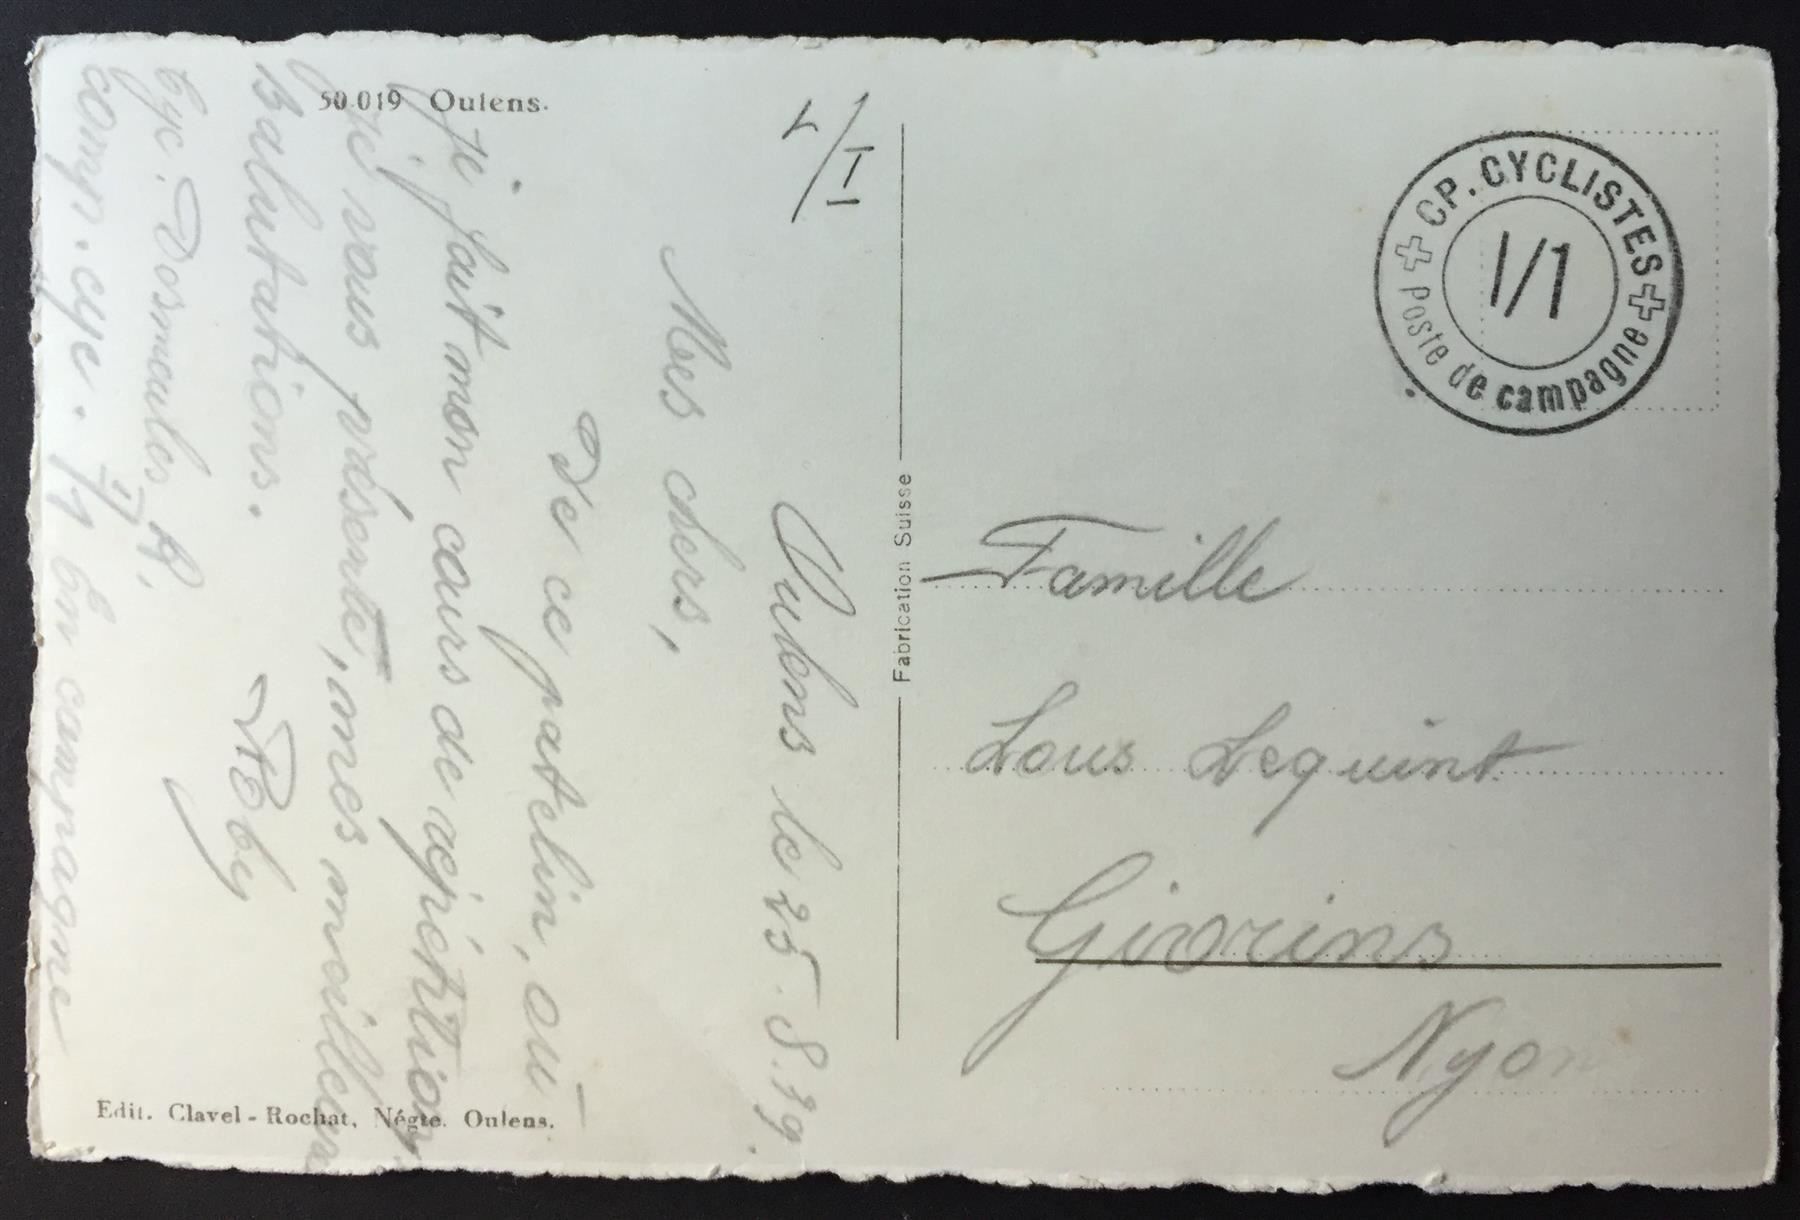 50.019 Oulens.
I/I
Oulens le 25.8.39
Mes chers,
De ce patelin, où
je fait mon cours de répétition
je vous présente, mes meilleurs
salutations.
Cyc. A.
comp. cyc. I/1 En campagne
Edit. Clavel-Rochat, Négte. Oulens.
Fabrication Suisse
CP. CYCLISTES
I/1
Poste de campagne
Famille
Lous Lequint
Givrins
Nyon